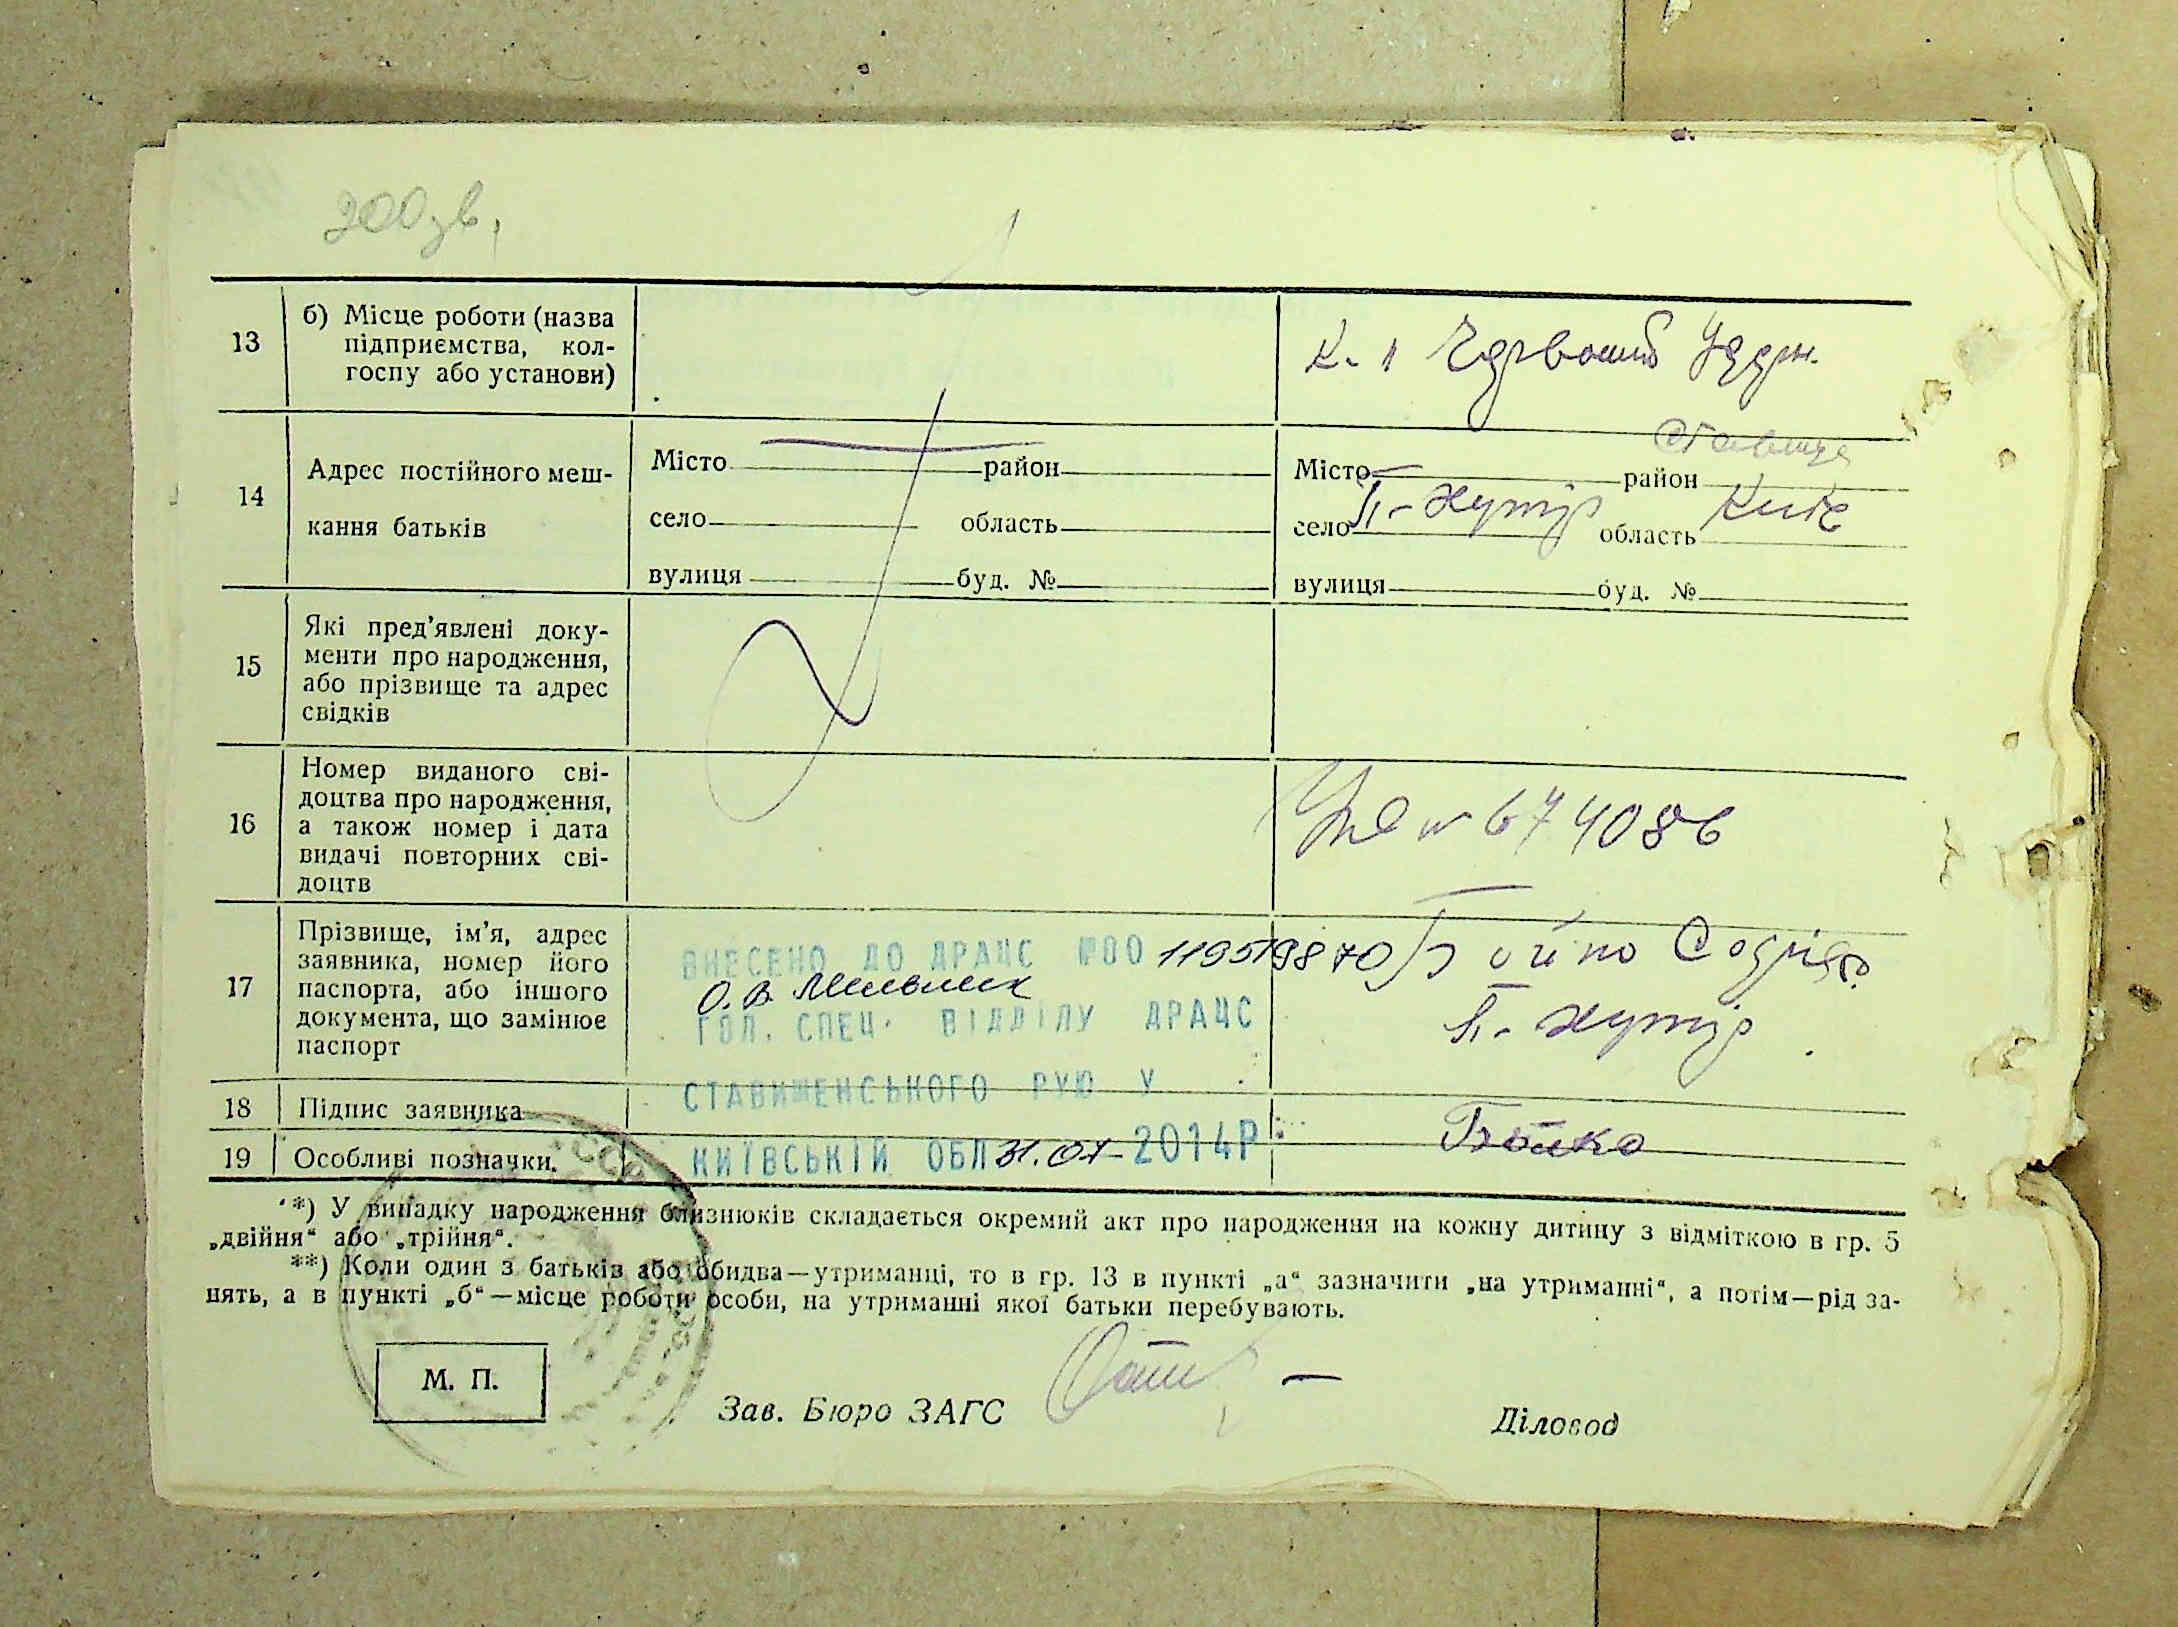 200зв.
13
б) Місце роботи (назва
підприємства, кол-
госпу або установи)
14
Адрес постійного меш-
кання батьків
Місто район
село область
вулиця буд. №
Ставище
Місто район
село П-Хутір область Київ
вулиця буд. №
15
Які пред'явлені доку-
менти про народження,
або прізвище та адрес
свідків
16
Номер виданого сві-
доцтва про народження,
а також номер і дата
видачі повторних сві-
доцтв
№ 674086
17
Прізвище, ім'я, адрес
заявника, номер його
паспорта, або іншого
документа, що замінює
паспорт
ВНЕСЕНО ДО ДРАЦС №00 119519870
О.В. Мельник
ГОЛ. СПЕЦ. ВІДДІЛУ ДРАЦС
СТАВИЩЕНСЬКОГО РУЮ У
КИЇВСЬКІЙ ОБЛ 31.07-2014Р.
П-Хутір
18 Підпис заявника
Бойко
19 Особливі позначки.
*) У випадку народження близнюків складається окремий акт про народження на кожну дитину з відміткою в гр. 5
„двійня“ або „трійня“.
**) Коли один з батьків або обидва—утриманці, то в гр. 13 в пункті „а“ зазначити „на утриманні“, а потім—рід за-
нять, а в пункті „б“—місце роботи особи, на утриманні якої батьки перебувають.
М. П.
Зав. Бюро ЗАГС
Діловод